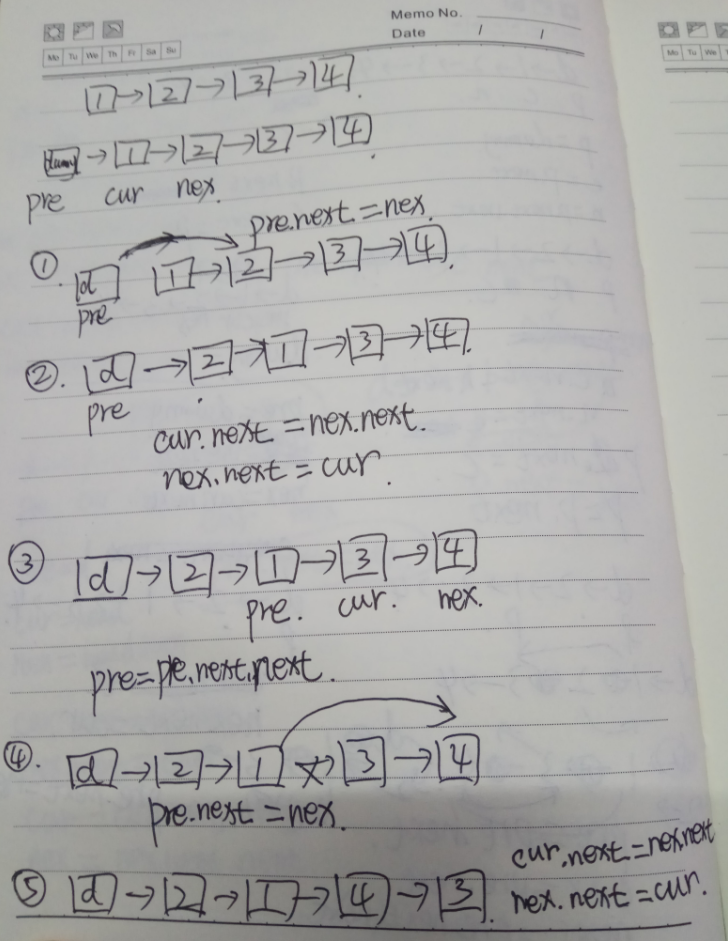 Memo No.
Date / /
Mo Tu We Th Fr Sa Su
1 → 2 → 3 → 4.
dumy → 1 → 2 → 3 → 4.
pre cur nex.
pre.next = nex.
①. d 1 → 2 → 3 → 4.
pre
②. d → 2 → 1 → 3 → 4.
pre
cur.next = nex.next.
nex.next = cur.
③ d → 2 → 1 → 3 → 4
pre. cur. nex.
pre = pre.next.next.
④. d → 2 → 1 → 3 → 4
pre.next = nex.
cur.next = nex.next
⑤ d → 2 → 1 → 4 → 3. nex.next = cur.
Mo Tu We